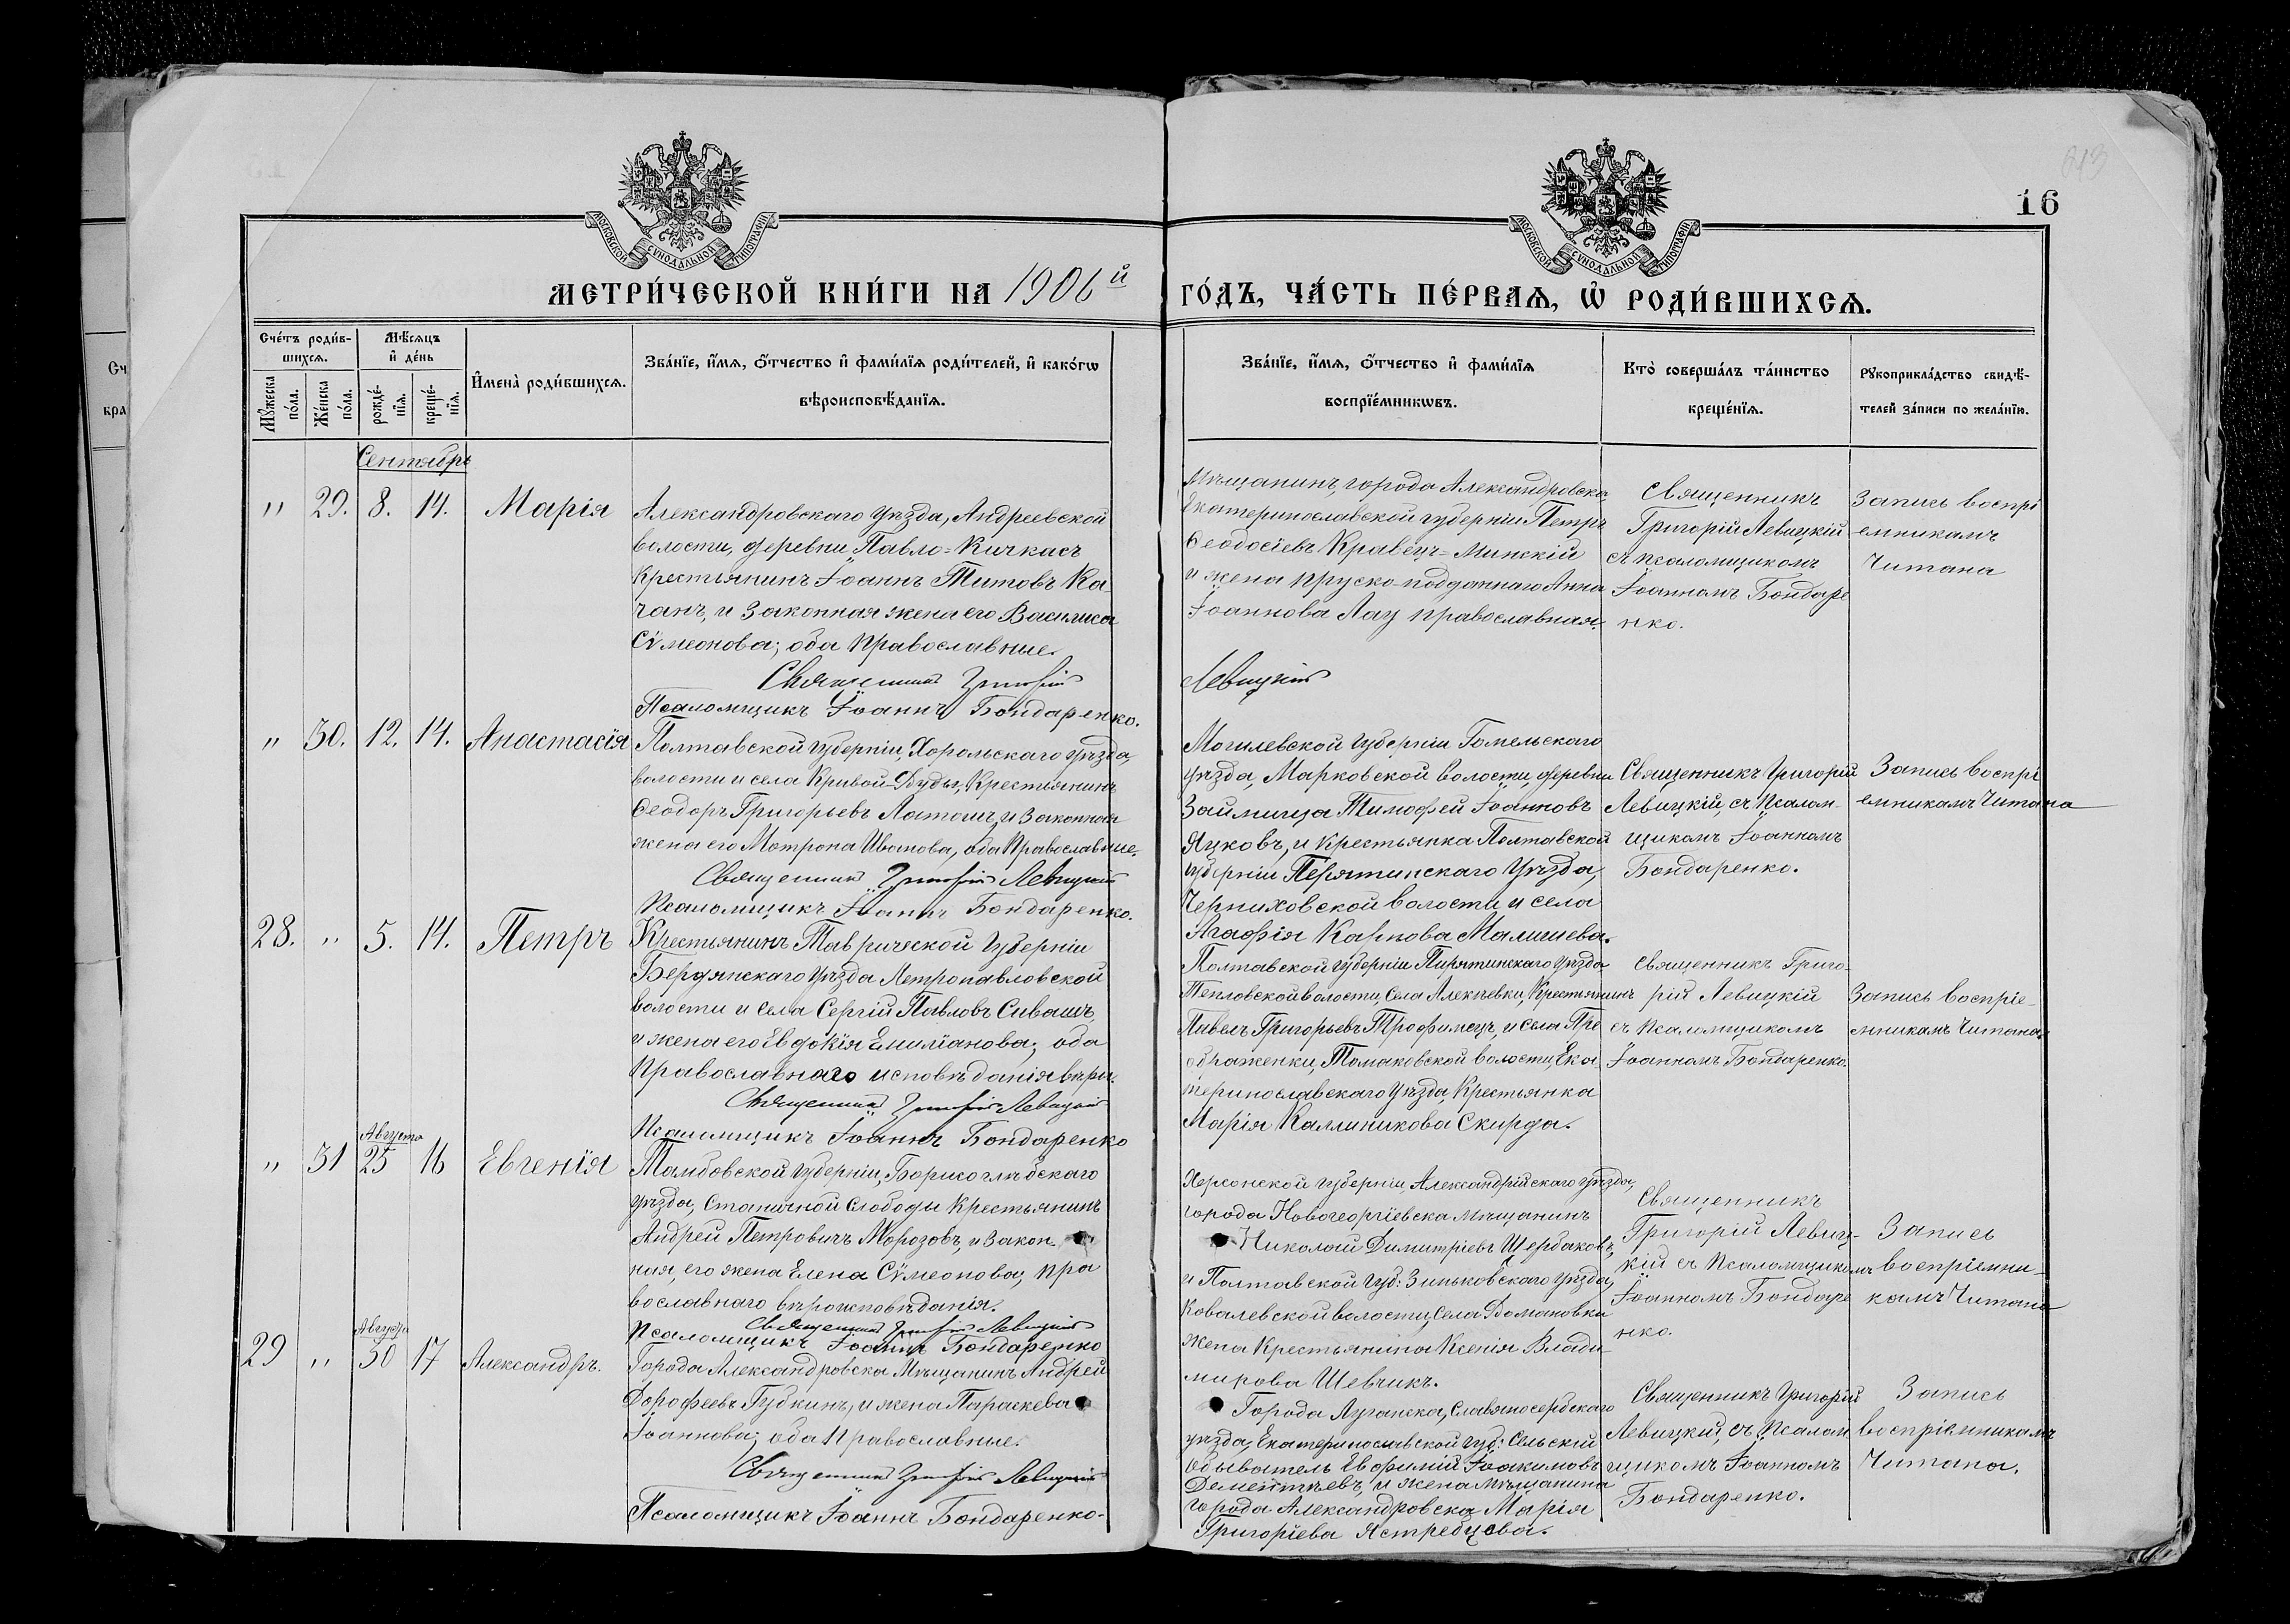 613
16
МОСКОВСКОЙ СѴНОДАЛЬНОЙ ТИПОГРАФІИ
МОСКОВСКОЙ СѴНОДАЛЬНОЙ ТИПОГРАФІИ
МЕТРИ́ЧЕСКОЙ КНИ́ГИ НА 1906й ГО́ДЪ, ЧА́СТЬ ПЕ́РВАѦ, Ѡ҆ РОДИ́ВШИХСѦ.
Сче́тъ роди́в-
шихсѧ.
Мѣ́сѧцъ
и҆ де́нь
Мꙋ́жеска
по́ла.
Же́нска
по́ла.
рожде́-
нїѧ.
креще́-
нїѧ.
И҆мена̀ роди́вшихсѧ.
Зва́нїе, и҆́мѧ, ѻ҆́тчество и҆ фами́лїѧ роди́телей, и҆ како́гѡ
вѣроисповѣ́данїѧ.
Зва́нїе, и҆́мѧ, ѻ҆́тчество и҆ фами́лїѧ
воспрїе́мникѡвъ.
Кто̀ соверша́лъ та́инство
креще́нїѧ.
Рꙋкоприкла́дство свидѣ́-
телей за́писи по жела́нїю.
Сентябрь
" 29. 8. 14. Марія
Александровскаго уѣзда, Андреевской
волости, деревни Павло=Кичкасъ
крестьянинъ Іоаннъ Титовъ Ка-
чанъ, и законная жена его Василиса
Сѵмеонова; оба православные.
Священникъ Григорій
Псаломщикъ Іоаннъ Бондаренко.
Мѣщанинъ, города Александровска,
Екатеринославской губерніи Петръ
Ѳеодосіевъ Кравецъ=Минскій
и жена пруско-подданнаго Анна
Іоаннова Лау православная.
Левицкій
Священникъ
Григорій Левицкій
съ псаломщикомъ
Іоанномъ Бондаре
нко.
Запись воспрі
емникамъ
Читана
" 30. 12. 14. Анастасія
Полтавской губерніи, Хорольскаго уѣзда,
волости и села Кривой-Руды, крестьянинъ
Ѳеодоръ Григорьевъ и законная
жена его Мотрона оба православные.
Священникъ Григорій Левицкій
Псаломщикъ Іоаннъ Бондаренко.
Могилевской губерніи Гомельскаго
уѣзда, Марковской волости, деревни
Займища Тимофей Іоанновъ
Яцковъ, и крестьянка Полтавской
губерніи Перятинскаго уѣзда,
Черниховской волости и села
Агафія Карпова Малишева.
Священникъ Григорій
Левицкій, съ псалом-
щикомъ Іоанномъ
Бондаренко.
Запись воспрі
емникамъ Читана
28. " 5. 14. Петръ
Крестьянинъ Таврической губерніи
Бердянскаго уѣзда Петропавловской
волости и села Сергій Павловъ Сивашъ,
и жена его Евдокія Емиліанова; оба
православнаго исповѣданія вѣры.
Священникъ Григорій Левицкій
Псаломщикъ Іоаннъ Бондаренко
Полтавской губерніи Пирятинскаго уѣзда
Тепловской волости, села Алексѣевки, крестьянинъ
Павелъ Григорьевъ Трофимецъ, и села Пре
ображенки, Томаковской волости, Ека
теринославскаго уѣзда, крестьянка
Марія Каллиникова Скирда.
Священникъ Григо-
рій Левицкій
съ псаломщикомъ
Іоанномъ Бондаренко.
Запись воспріе-
мникамъ Читана.
" 31 Августа 25 16 Евгенія
Тамбовской губерніи, Борисоглѣбскаго
уѣзда, Станичной слободы крестьянинъ
Андрей Петровичъ Морозовъ, и закон-
ная, его жена Елена Сѵмеонова, пра
вославнаго вѣроисповѣданія.
Священникъ Григорій Левицкій
Псаломщикъ Іоаннъ Бондаренко
Херсонской губерніи, Александрійскаго уѣзда,
города Новогеоргіевска мѣщанинъ
Николай Димитріевъ Щербаковъ,
и Полтавской губ: Зиньковскаго уѣзда,
Ковалевской волости, села Домановки
жена крестьянина Ксенія Влади-
мирова Шевчикъ.
Священникъ
Григорій Левиц-
кій съ псаломщикомъ
Іоанномъ Бондаре
нко.
Запись
воспріемни-
камъ Читана
29 " Августа 30 17 Александръ.
Города Александровска мѣщанинъ Андрей
Дорофеевъ Губкинъ, и жена Параскева
Іоаннова; оба православные.
Священникъ Григорій Левицкій
Псаломщикъ Іоаннъ Бондаренко.
Города Луганска, Славяносербскаго
уѣзда, Екатеринославской губ: сельскій
обыватель Евфимій Іоакимовъ
Дементьевъ, и жена мѣщанина
города Александровска Марія
Григоріева Ястребцева.
Священникъ Григорій
Левицкій, съ псалом
щикомъ Іоанномъ
Бондаренко.
Запись
воспріемникамъ
Читана.